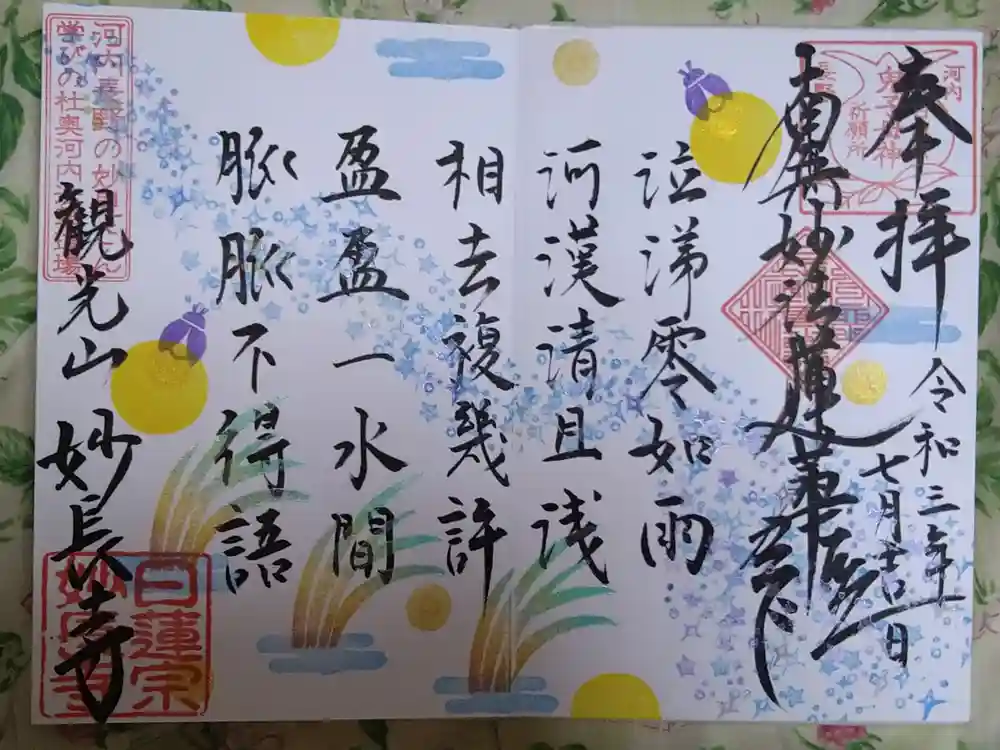 奉拝
令和三年
七月吉日
南無妙法蓮華経
泣涕零如雨
河漢清且浅
相去複幾許
盈盈一水間
脈脈不得語
観光山 妙長寺
河内
長野
鬼子母神
祈願所
河内長野の妙
学びの杜奥河内
日蓮宗
妙長寺